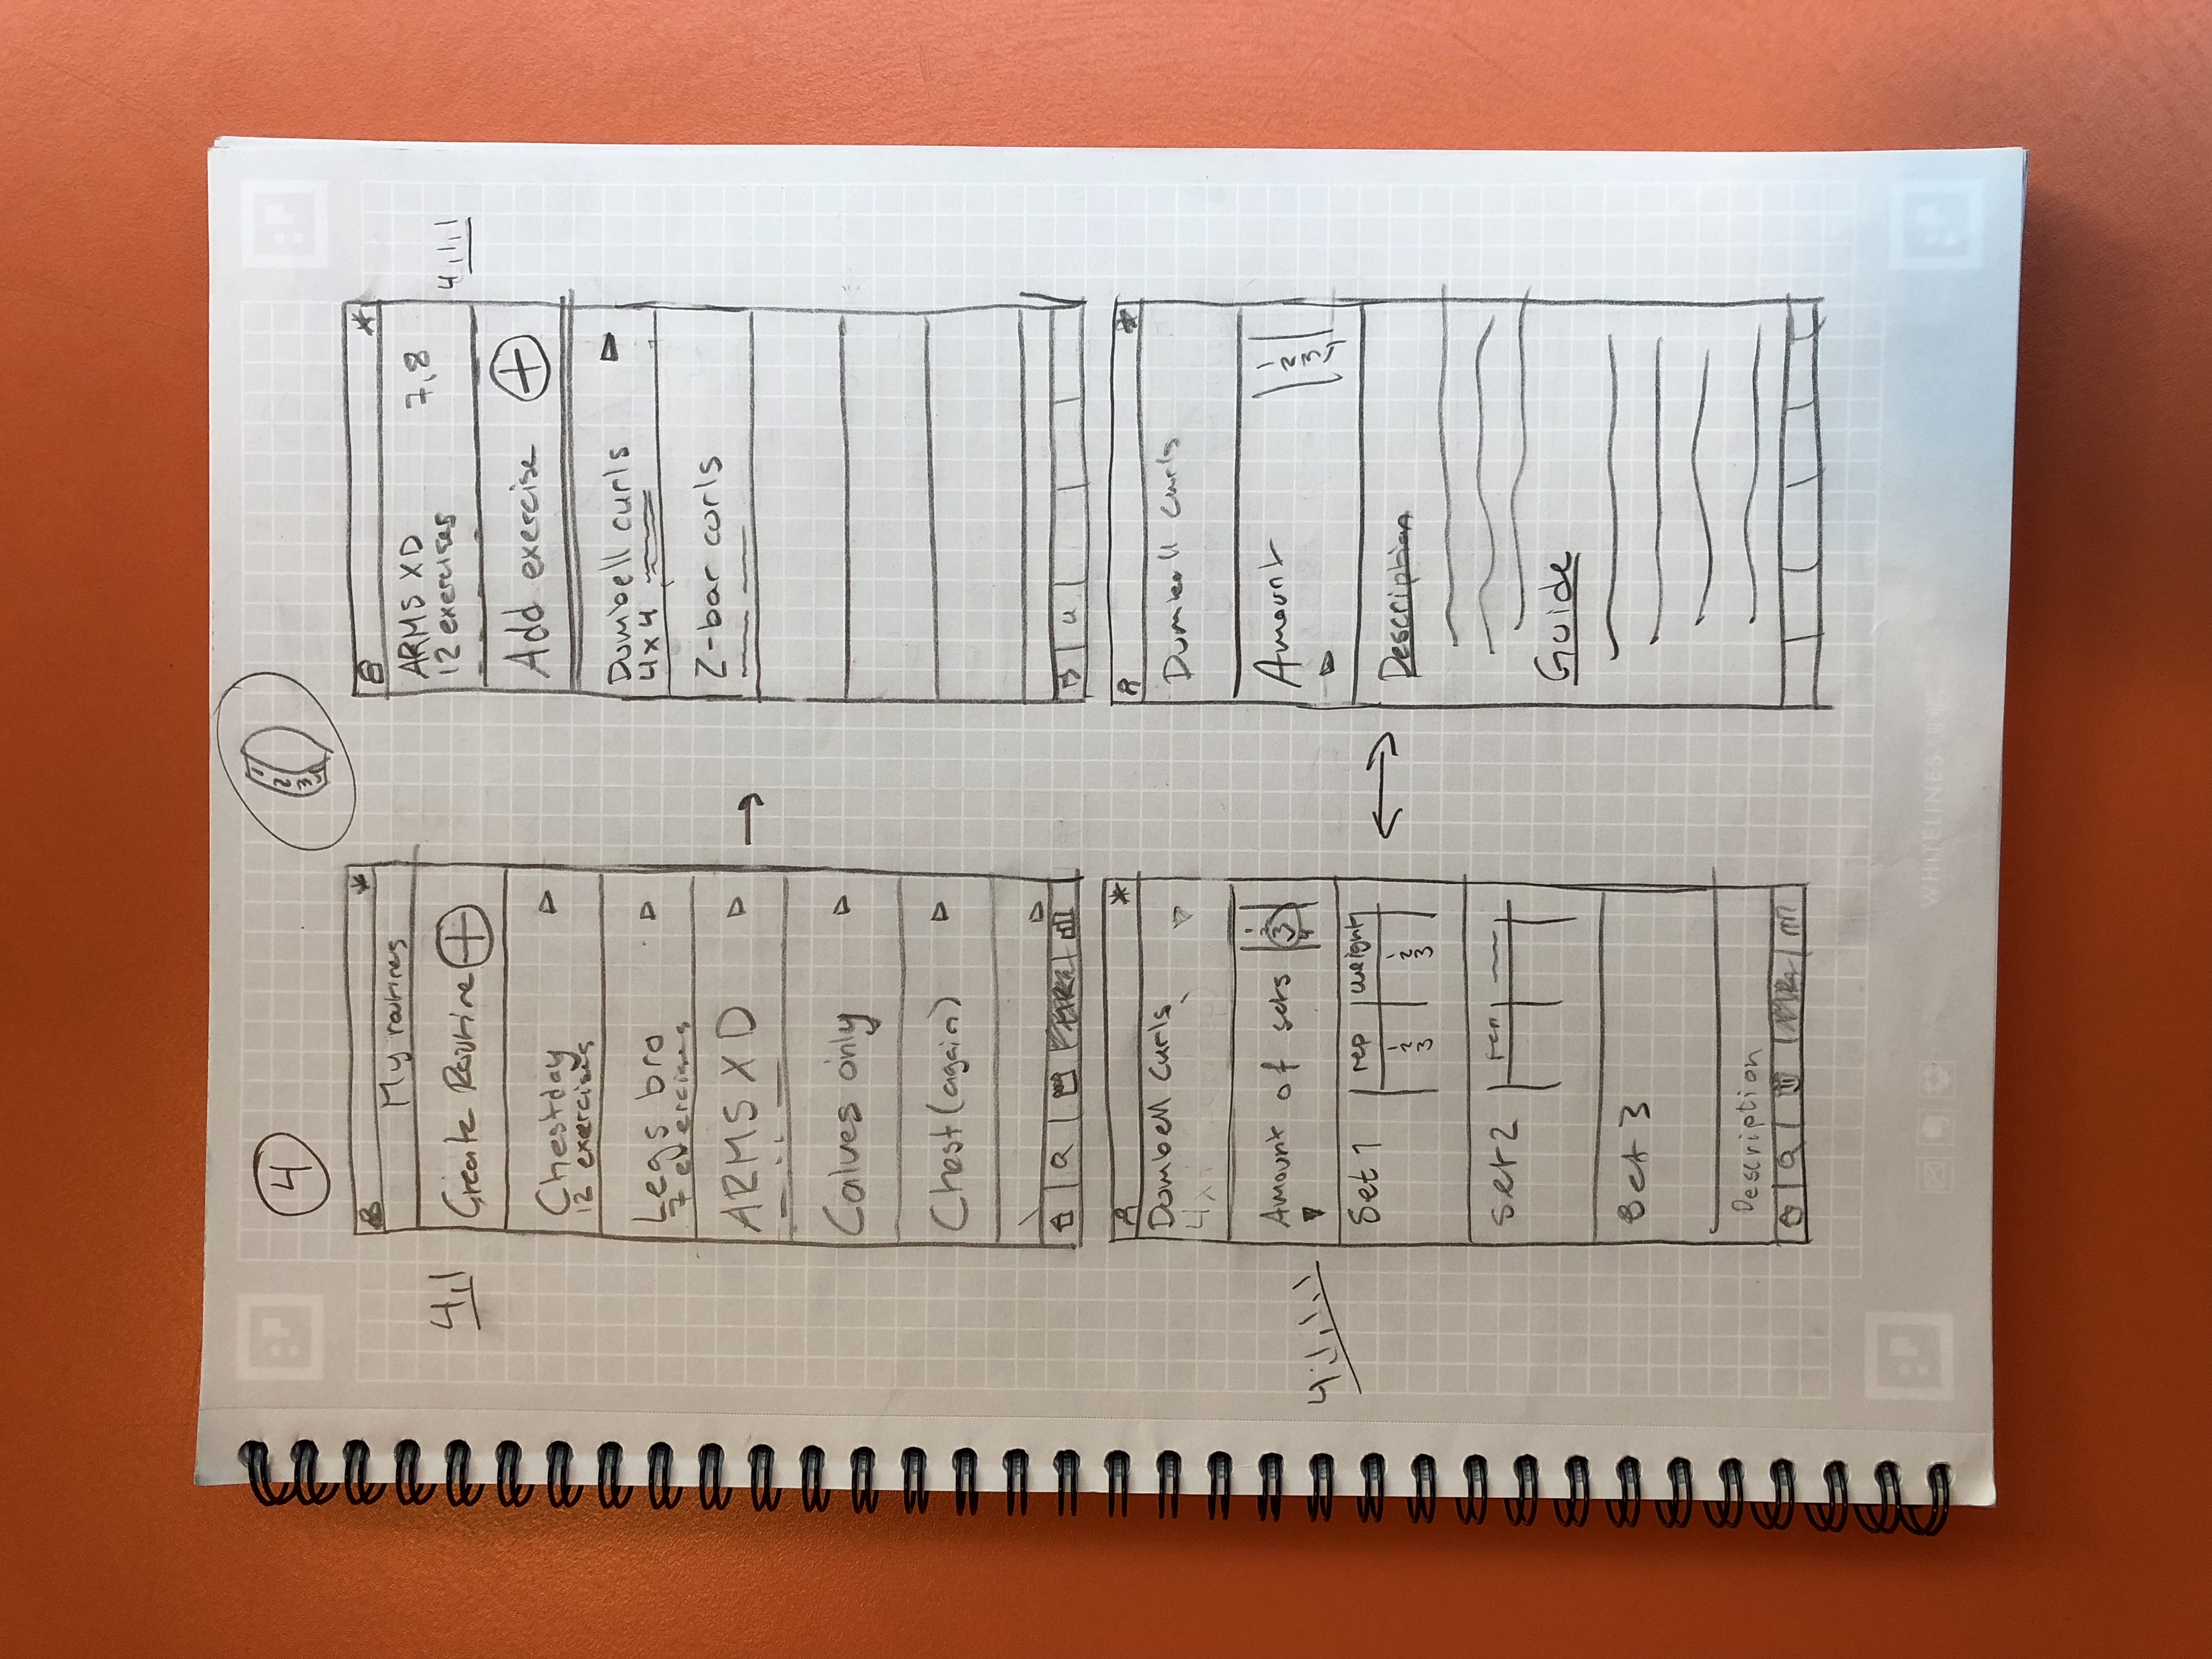 4
1
2
3
4
4,1
My routines
Create Routine
Chestday
12 exercises
Legs bro
7 exercises
ARMS XD
Calves only
Chest (again)
4,1,1
ARMS XD 7,8
12 exercises
Add exercise
Dumbell curls
4x4
Z-bar curls
4,1,1,1
Dumbell Curls
4x
Amount of sets
2
3
4
Set 1 rep weight
1 1
2 2
3 3
Set 2 rep
Set 3
Description
Dumbell Curls
Amount
1
2
3
4
Description
Guide
WHITELINES